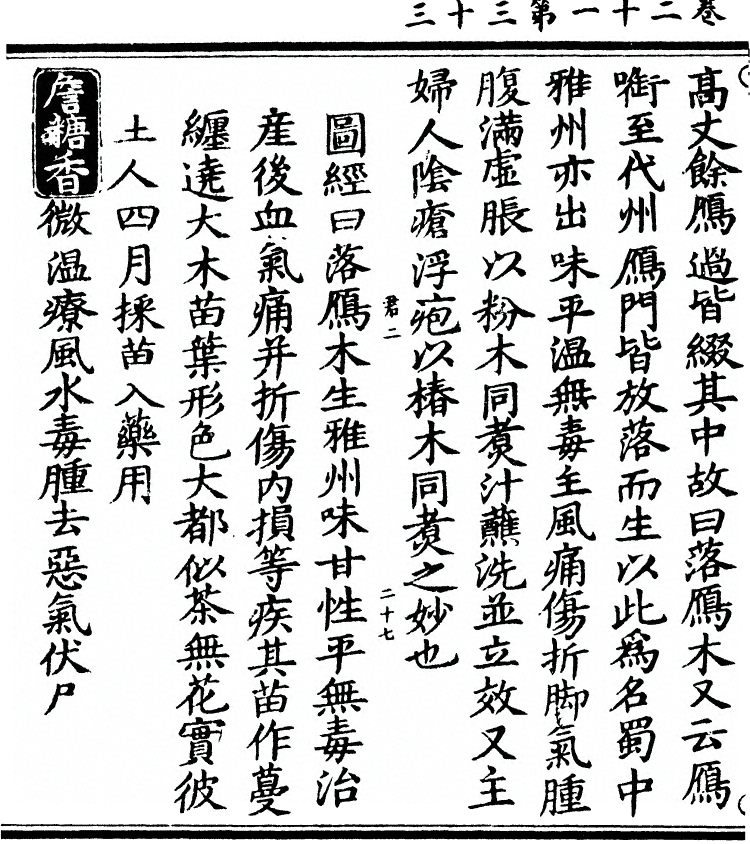 卷二十一第三十三
高丈餘鴈過皆綴其中故曰落鴈木又云鴈
㗸至代州鴈門皆放落而生以此爲名蜀中
雅州亦出味平溫無毒主風痛傷折脚氣腫
腹滿虛脹以粉木同煮汁蘸洗並立效又主
婦人陰瘡浮疱以椿木同煮之妙也
君二
二十七
圖經曰落鴈木生雅州味甘性平無毒治
産後血氣痛并折傷內損等疾其苗作蔓
纏遶大木苗葉形色大都似茶無花實彼
土人四月採苗入藥用
詹糖香微溫療風水毒腫去惡氣伏尸